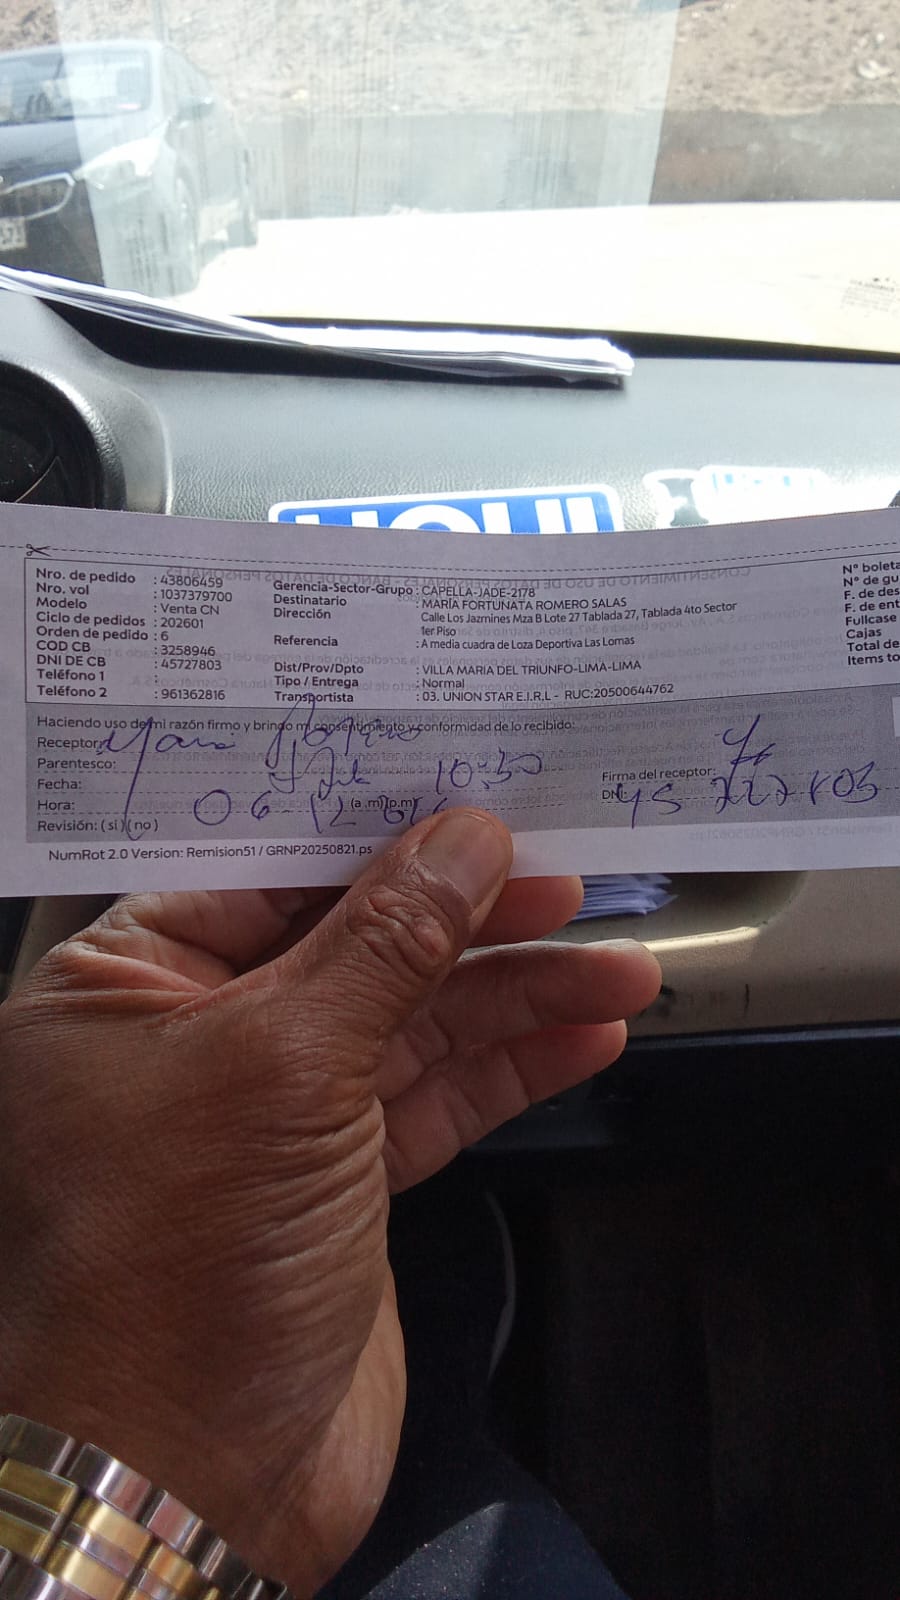 Nro. de pedido : 43806459
Nro. vol : 1037379700
Modelo : Venta CN
Ciclo de pedidos : 202601
Orden de pedido : 6
COD CB : 3258946
DNI DE CB : 45727803
Teléfono 1 :
Teléfono 2 : 961362816
Gerencia-Sector-Grupo : CAPELLA-JADE-2178
Destinatario : MARÍA FORTUNATA ROMERO SALAS
Dirección : Calle Los Jazmines Mza B Lote 27 Tablada 27, Tablada 4to Sector
1er Piso
Referencia : A media cuadra de Loza Deportiva Las Lomas
Dist/Prov/Dpto : VILLA MARIA DEL TRIUNFO-LIMA-LIMA
Tipo / Entrega : Normal
Transportista : 03. UNION STAR E.I.R.L - RUC:20500644762
N° boleta
N° de gu
F. de des
F. de ent
Fullcase
Cajas
Total de
Items to
Haciendo uso de mi razón firmo y brindo mi consentimiento y conformidad de lo recibido:
Receptor:
Parentesco:
Fecha: 10:50
Hora: 06-12 (a.m)(p.m)
Revisión: ( si ) ( no )
Firma del receptor:
DNI:
NumRot 2.0 Version: Remision51 / GRNP20250821.ps